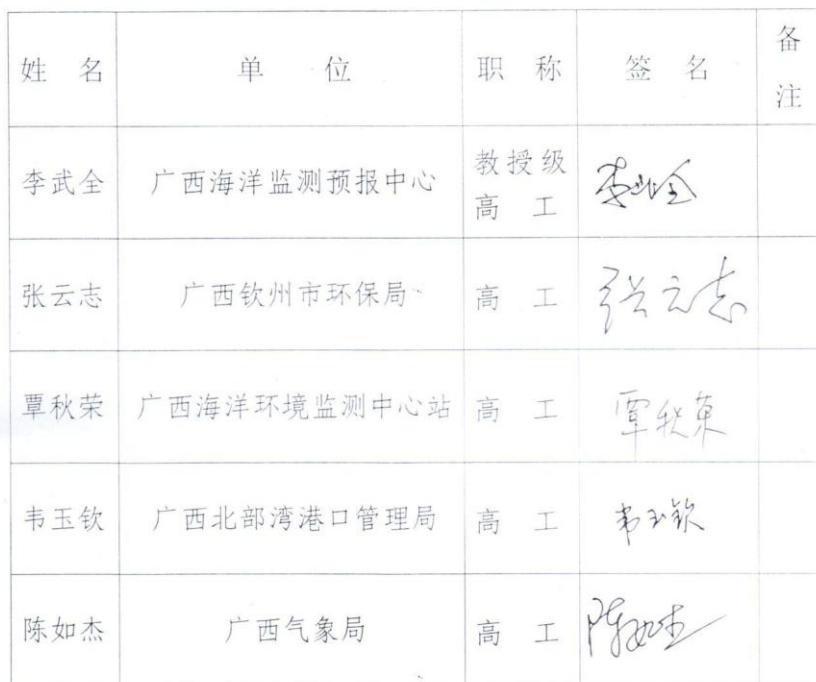 姓 名 单 位 职 称 签 名 备注
李武全 广西海洋监测预报中心 教授级高 工 李武全
张云志 广西钦州市环保局 高 工 张云志
覃秋荣 广西海洋环境监测中心站 高 工 覃秋荣
韦玉钦 广西北部湾港口管理局 高 工 韦玉钦
陈如杰 广西气象局 高 工 陈如杰